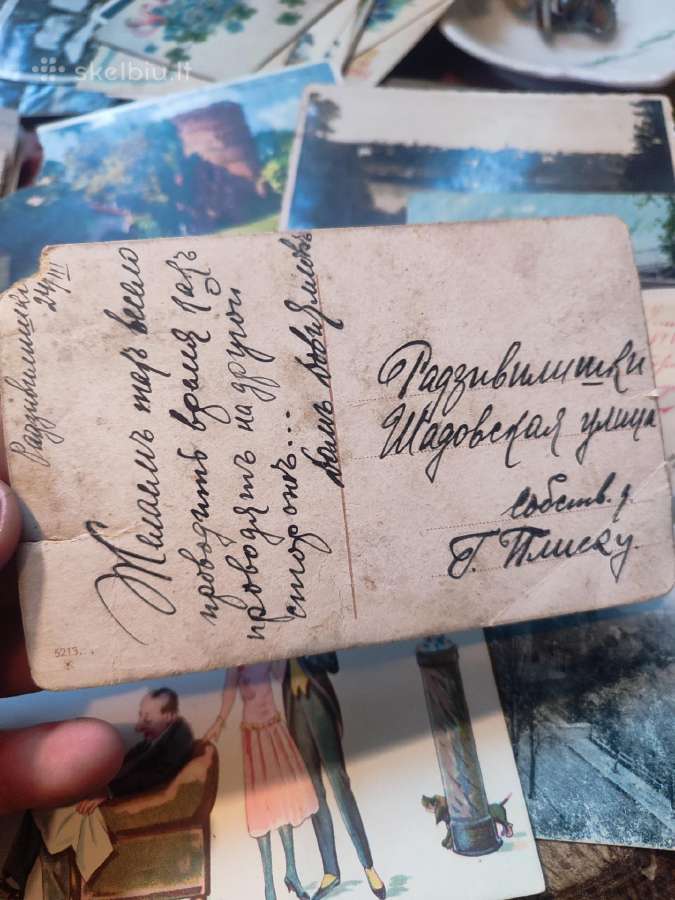 skelbiu.lt
Радзивилишки
24/III
Желаемъ такъ весело
проводить время какъ
проводятъ на другой
сторонѣ...
вамъ
Радзивилишки
Шадовская улица
собств. д.
Г. Плиску.
5213.